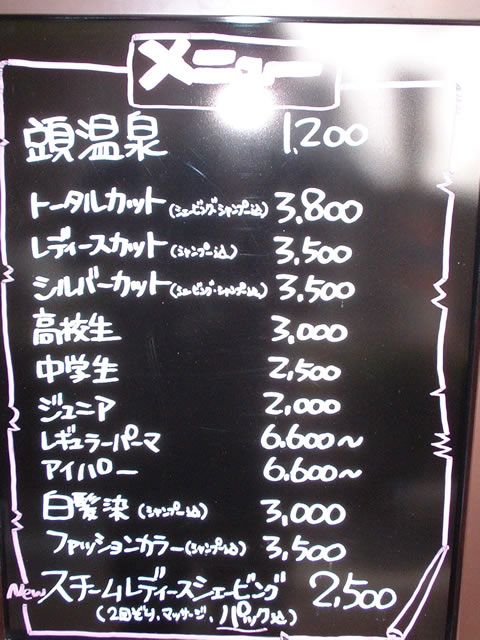 メニュー
頭温泉 1,200
トータルカット(シェービング・シャンプー込) 3,800
レディースカット(シャンプー込) 3,500
シルバーカット(シェービング・シャンプー込) 3,500
高校生 3,000
中学生 2,500
ジュニア 2,000
レギュラーパーマ 6,600〜
アイパー 6,600〜
白髪染(シャンプー込) 3,000
ファッションカラー(シャンプー込) 3,500
New スチームレディースシェービング 2,500
(2回ぞり、マッサージ、パック込)